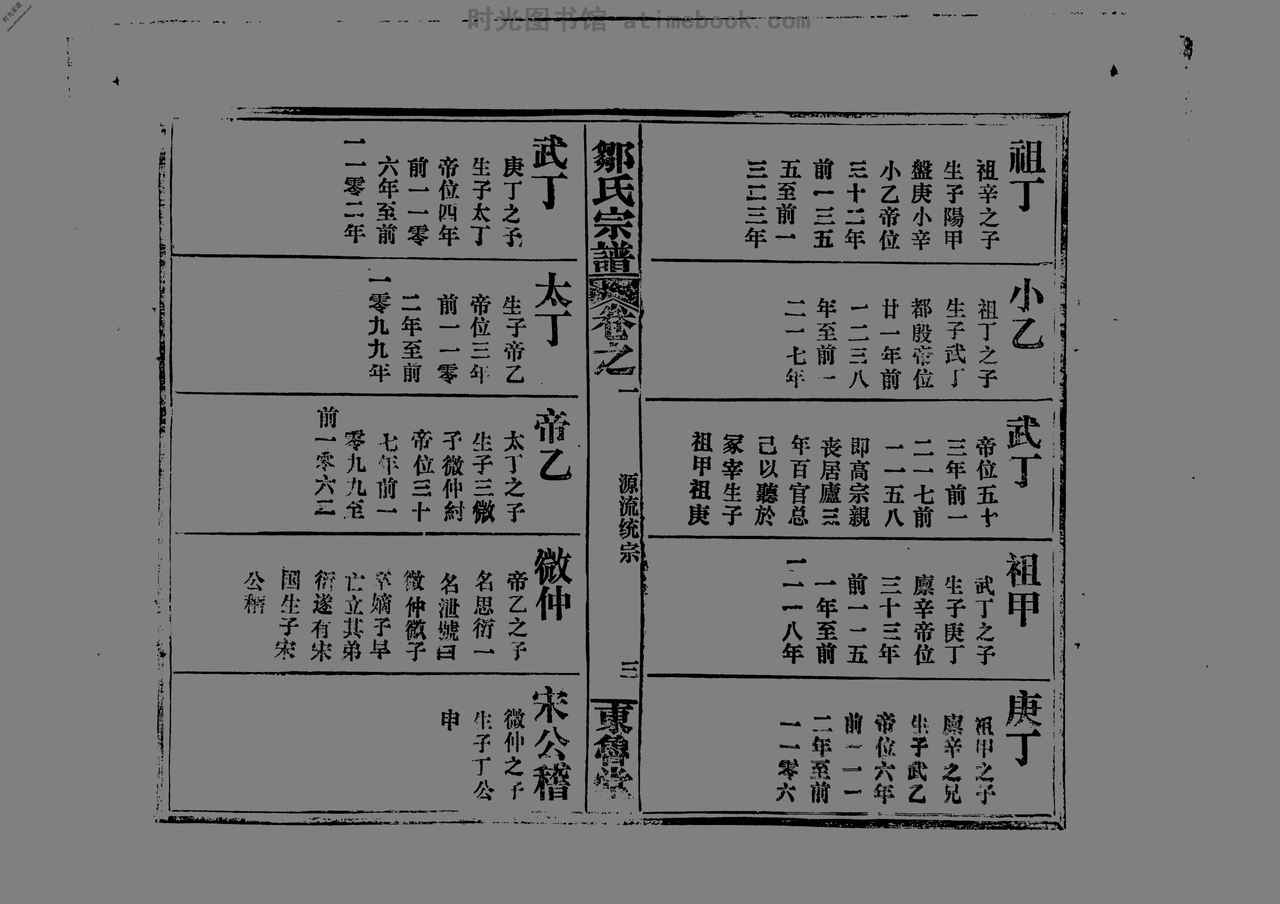 时光图书馆 atimebook.com
祖丁
祖辛之子
生子陽甲
盤庚小辛
小乙帝位
三十二年
前一三五
五至前一
三二三年
小乙
祖丁之子
生子武丁
都殷帝位
廿一年前
一二三八
年至前一
二一七年
武丁
帝位五十
三年前一
二一七前
一一五八
即高宗親
丧居廬三
年百官总
己以聽於
冢宰生子
祖甲祖庚
祖甲
武丁之子
生子庚丁
廪辛帝位
三十三年
前一一五
一年至前
一一一八年
庚丁
祖甲之子
廪辛之兄
生子武乙
帝位六年
前一一一
二年至前
一一零六
鄒氏宗譜
卷之
一
源流统宗
三
東魯堂
武丁
庚丁之子
生子太丁
帝位四年
前一一零
六年至前
一一零二年
太丁
生子帝乙
帝位三年
前一一零
二年至前
一零九九年
帝乙
太丁之子
生子三微
子微仲紂
帝位三十
七年前一
零九九至
前一零六二
微仲
帝乙之子
名思衍一
名泄號曰
微仲微子
卒嫡子早
亡立其弟
衍遂有宋
国生子宋
公稽
宋公稽
微仲之子
生子丁公
申